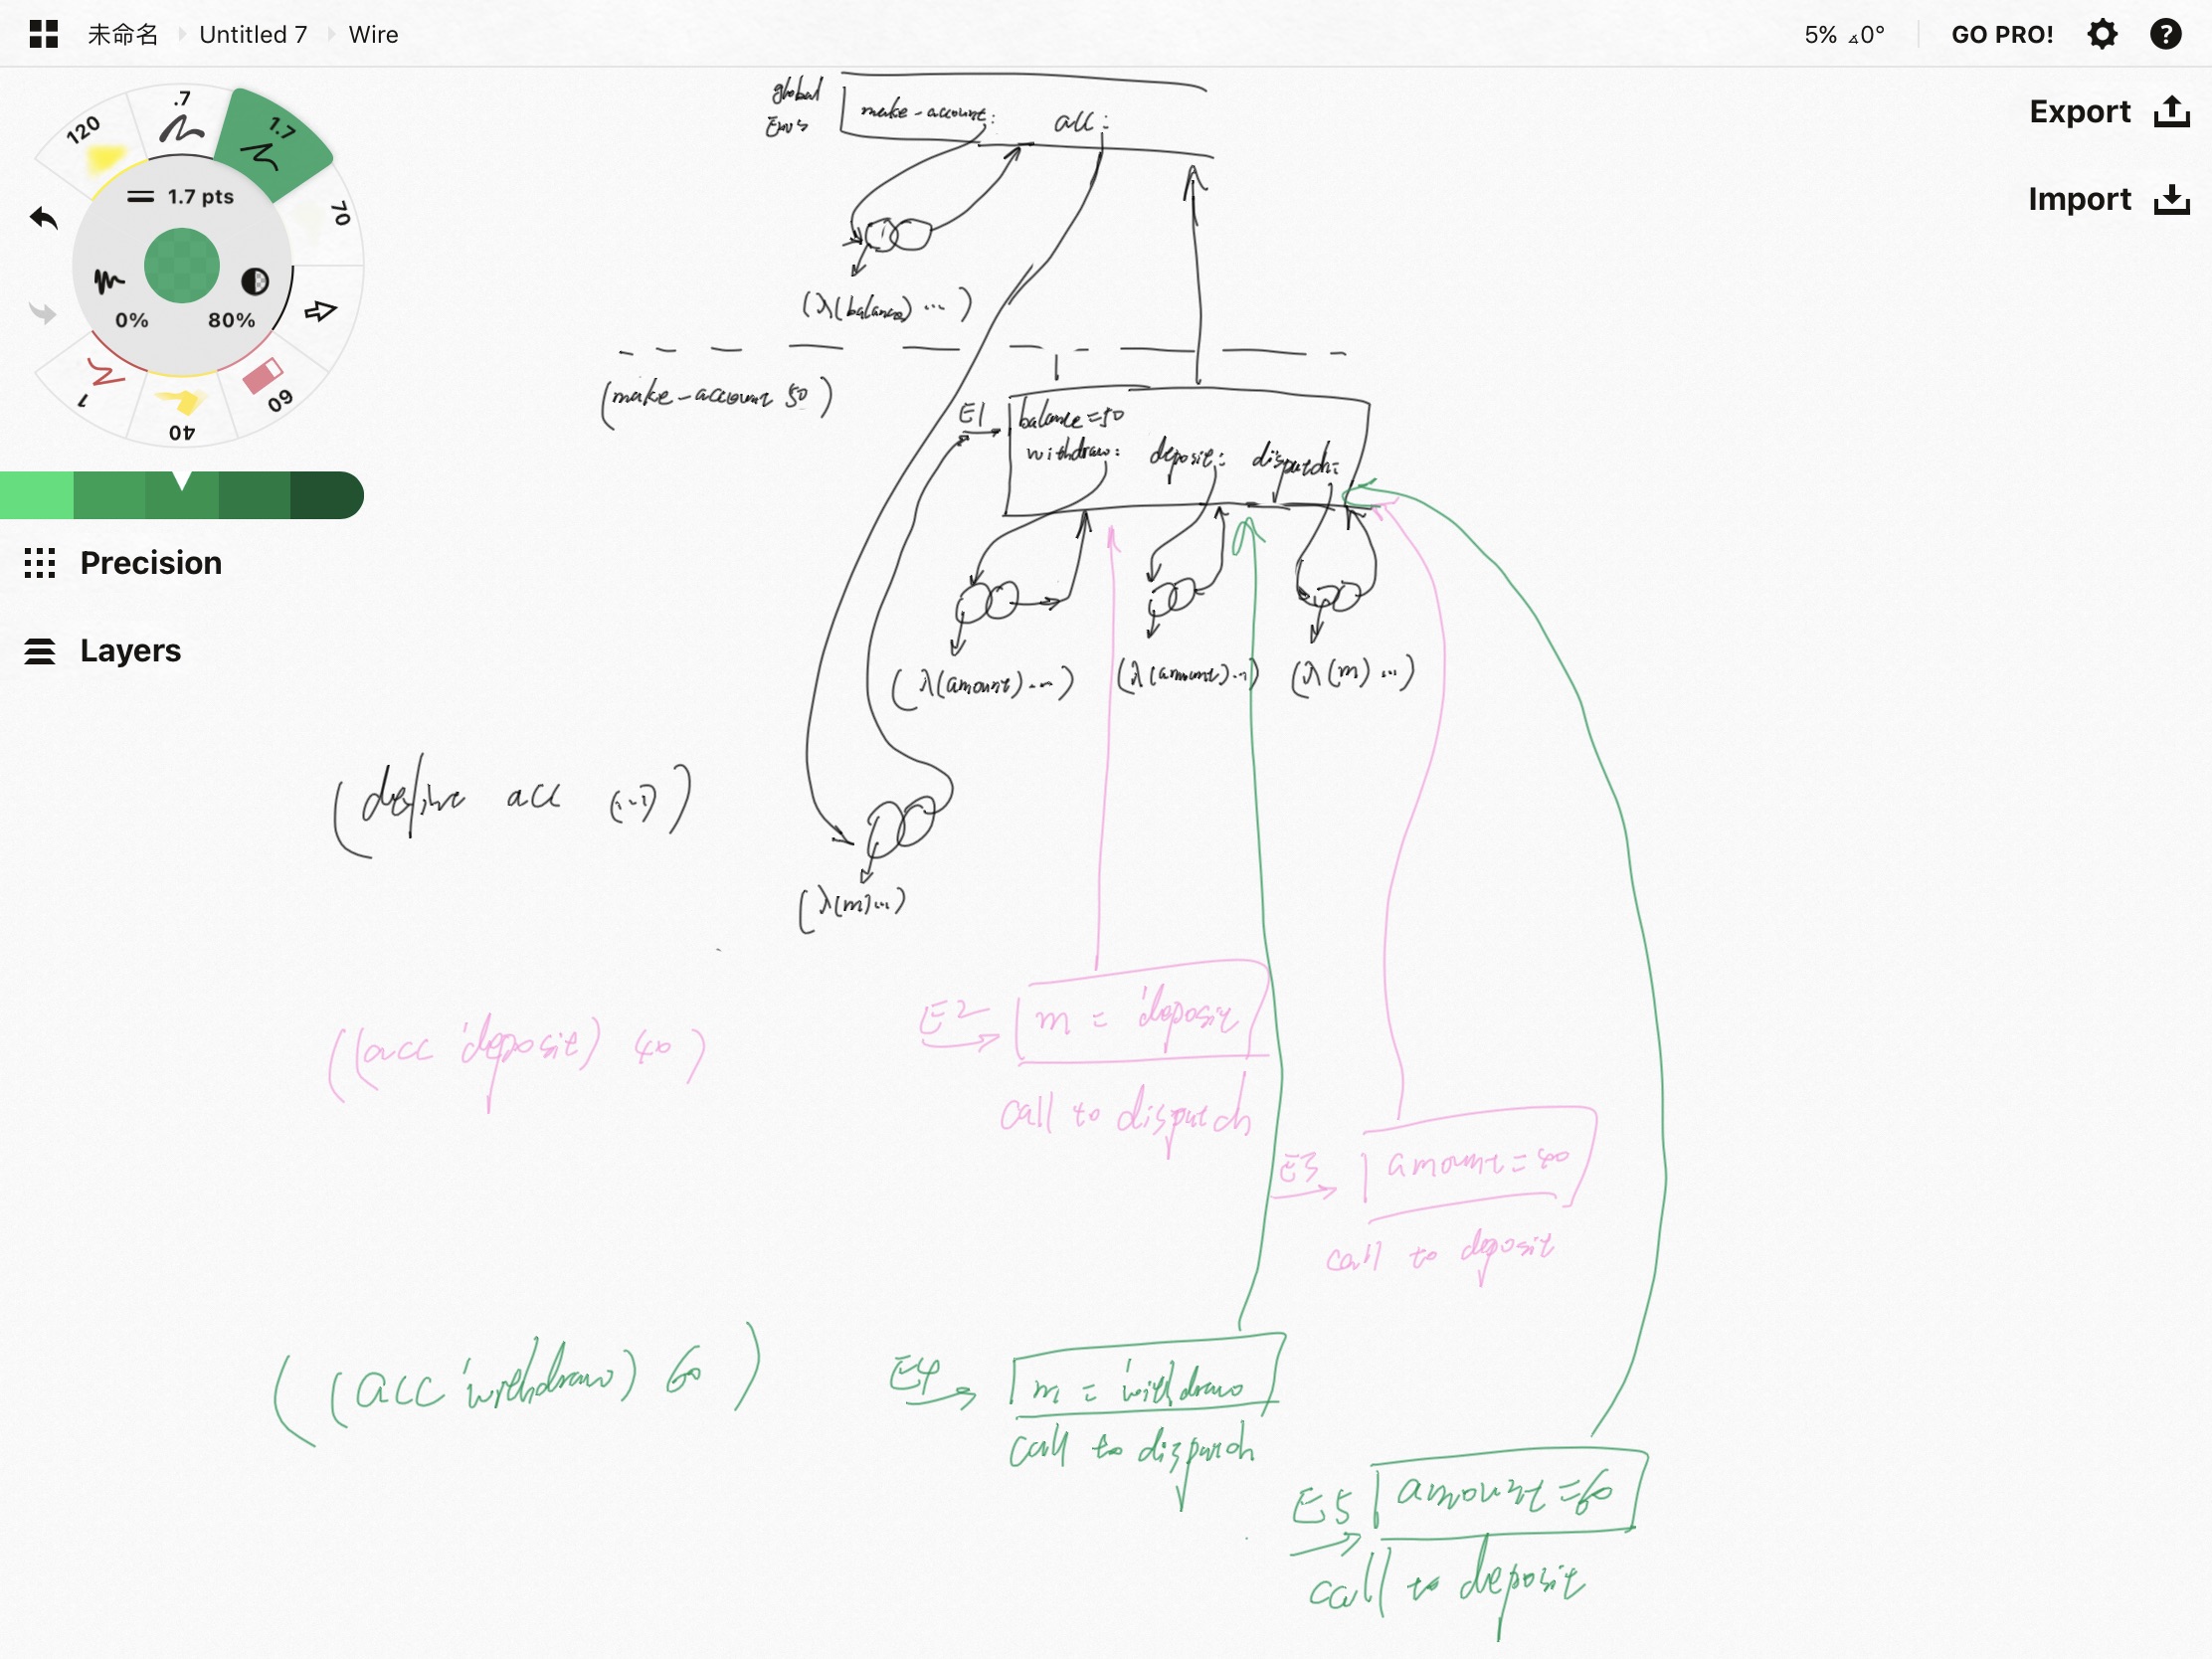 未命名 Untitled 7 Wire
5% ∡0° GO PRO!
Export
Import
120
.7
1.7
70
1.7 pts
0% 80%
1
40
60
Precision
Layers
global
Env
make-account: acc:
(λ(balance) ...)
(make-account 50)
E1
balance=50
withdraw: deposit: dispatch:
(λ(amount)...) (λ(amount)...) (λ(m)...)
(define acc (...))
(λ(m)...)
((acc 'deposit) 40)
E2 m = 'deposit
call to dispatch
E3 amount=40
call to deposit
((acc 'withdraw) 60)
E4 m = 'withdraw
call to dispatch
E5 amount=60
call to deposit